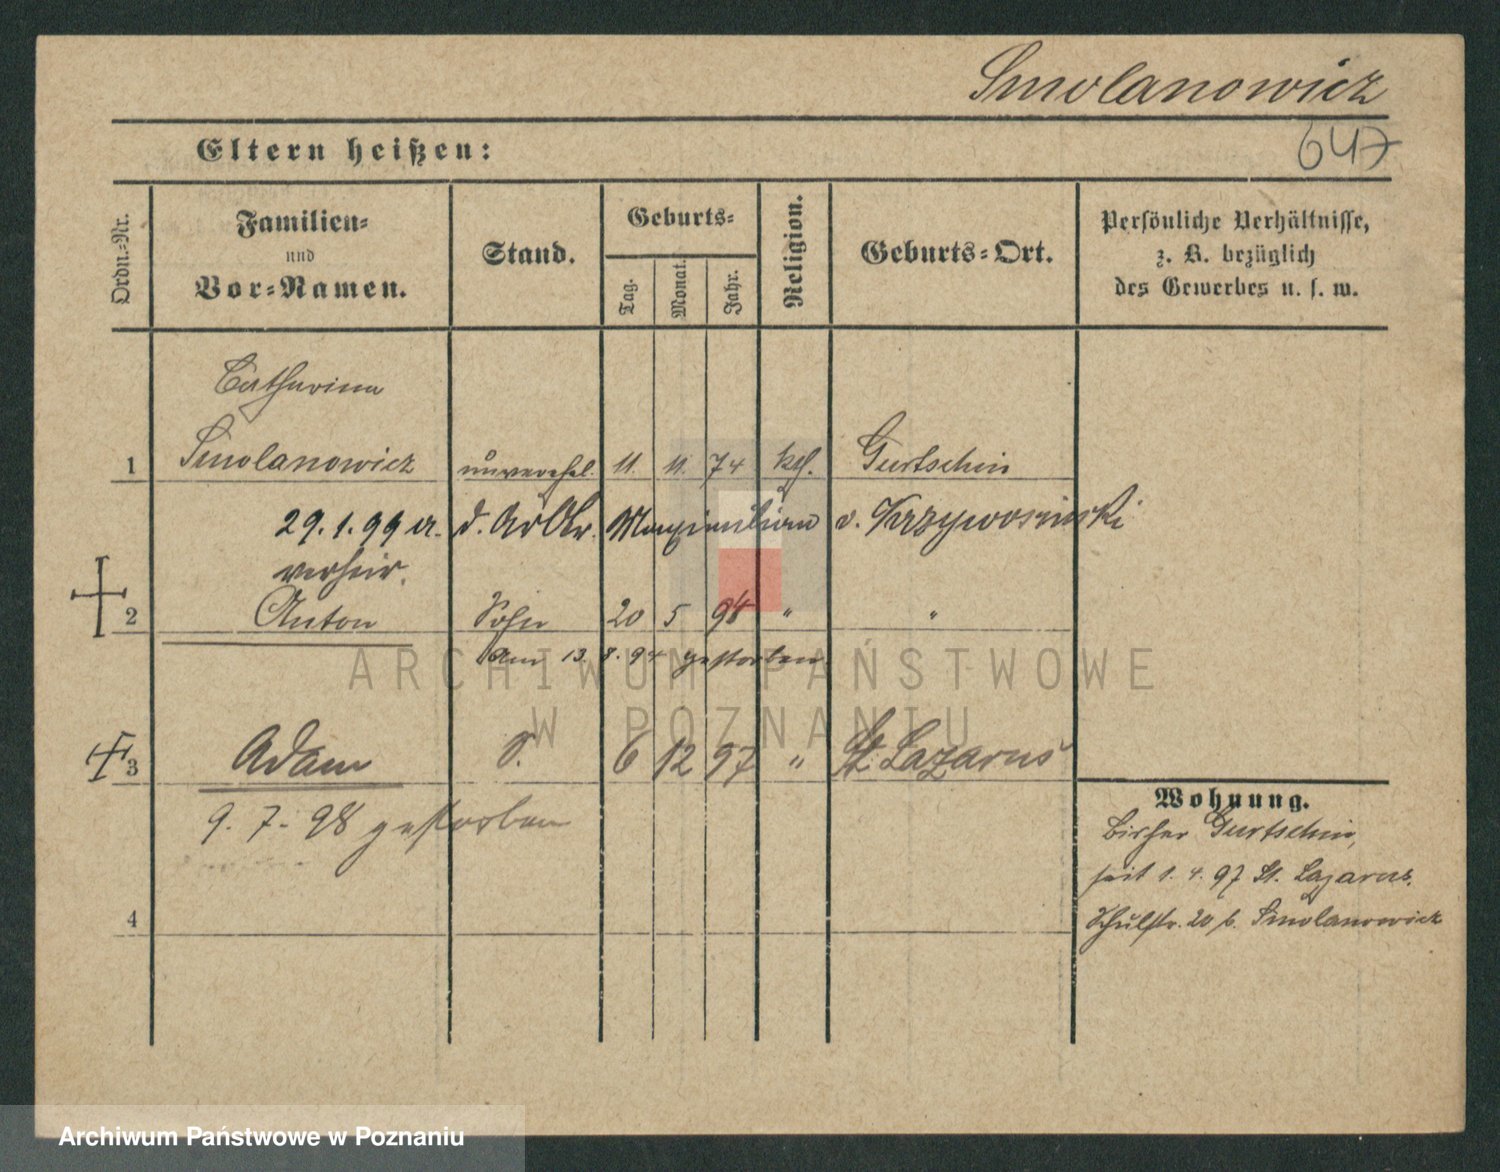 Smolanowicz
647
Eltern heißen:
Ordn.-Nr.
Familien-
und
Vor-Namen.
Stand.
Geburts-
Tag.
Monat.
Jahr.
Religion.
Geburts-Ort.
Persönliche Verhältnisse,
z. B. bezüglich
des Gewerbes u. s. w.
Catharina
1 Smolanowicz unverehel. 11. 11. 74 kth. Gurtschin
29.1.99 a. d. Maximilian v. Krzywosinski
verheir.
2 Anton Sohn 20 5 94 " "
Am 13. 8. 94 gestorben
3 Adam S. 6 12 97 " St. Lazarus
9. 7. 98 gestorben
4
Wohnung.
Bisher Gurtschin,
seit 1. 4. 97 St. Lazarus.
Schulstr. 20 b. Smolanowicz
ARCHIWUM PAŃSTWOWE
W POZNANIU
Archiwum Państwowe w Poznaniu